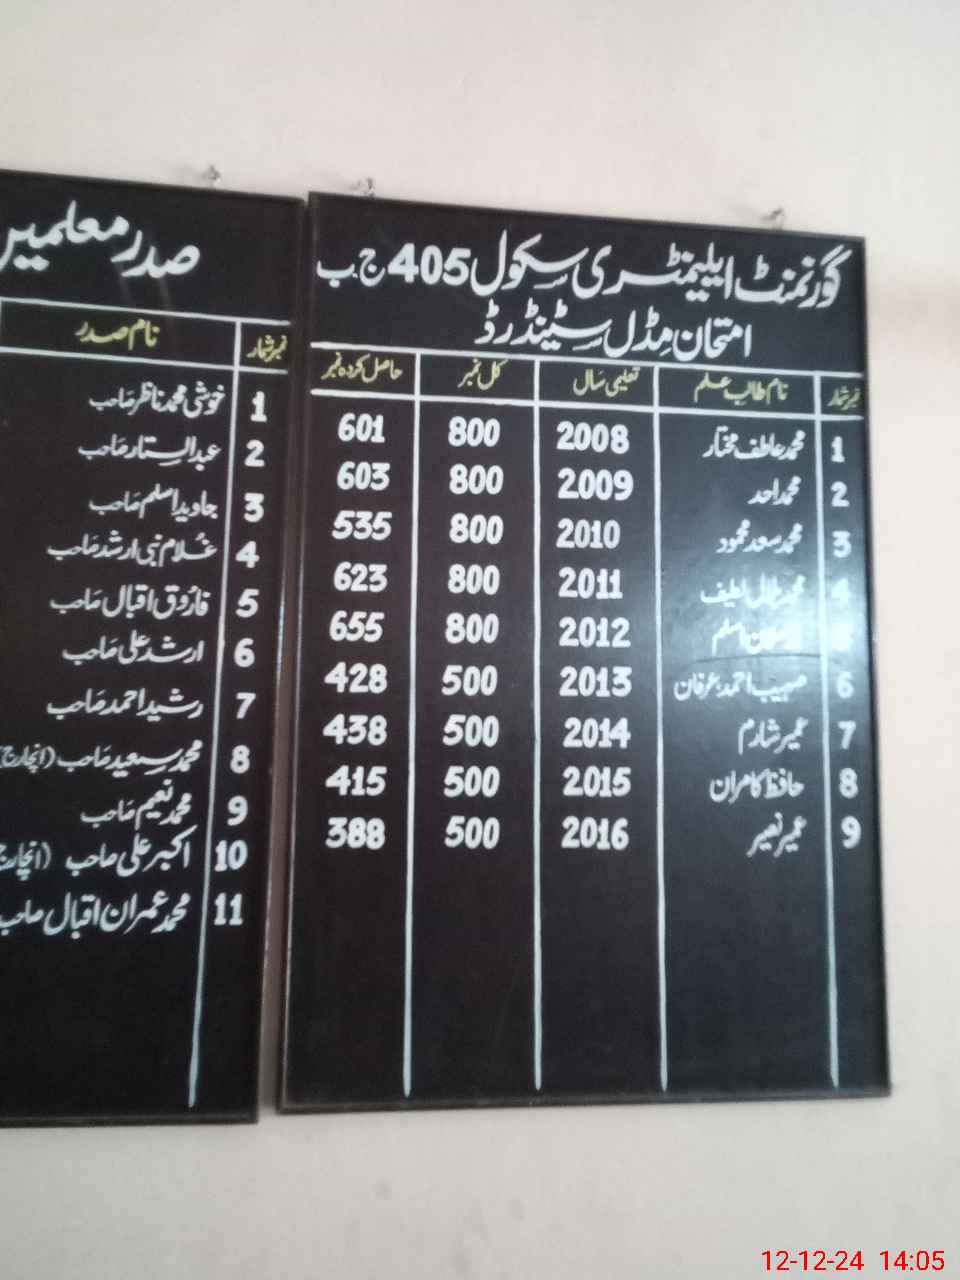 گورنمنٹ ایلیمنٹری سکول 405 ج ب
امتحان مڈل سٹینڈرڈ
نمبر شمار نام طالب علم تعلیمی سال کل نمبر حاصل کردہ نمبر
1 محمد عاطف مختار 2008 800 601
2 محمد احد 2009 800 603
3 محمد سعد محمود 2010 800 535
4 محمد طلال لطیف 2011 800 623
اسلم 2012 800 655
6 صہیب احمد عرفان 2013 500 428
7 عمیر شارم 2014 500 438
8 حافظ کامران 2015 500 415
9 عمیر نصیر 2016 500 388
صدر معلمین
نمبر شمار نام صدر
1 خوشی محمد ناظر صاحب
2 عبدالستار صاحب
3 جاوید اسلم صاحب
4 غلام نبی ارشد صاحب
5 فاروق اقبال صاحب
6 ارشد علی صاحب
7 رشید احمد صاحب
8 محمد سعید صاحب (انچارج)
9 محمد نعیم صاحب
10 اکبر علی صاحب (انچارج
11 محمد عمران اقبال صاحب
12-12-24 14:05